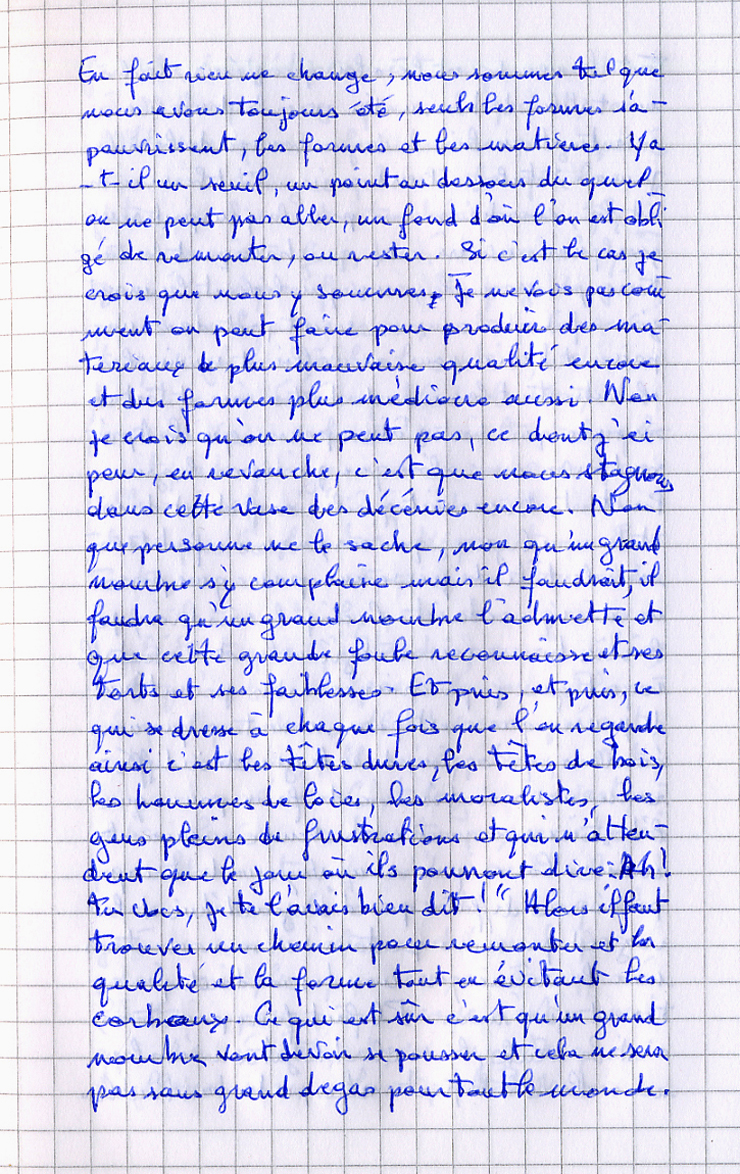 En fait rien ne change, nous sommes tel que
nous avons toujours été, seuls les formes s'a-
pauvrissent, les formes et les matières. Y a
-t-il un seuil, un point au dessous du quel
on ne peut pas aller, un fond d'où l'on est obli
gé de remonter, ou rester. Si c'est le cas je
crois que nous y sommes, Je ne vois pas com
ment on peut faire pour produire des ma-
tériaux de plus mauvaise qualité encore
et des formes plus médiocre aussi. Non
je crois qu'on ne peut pas, ce dont j'ai
peur, en revanche, c'est que nous stagnons
dans cette vase des décénies encore. Non
que personne ne le sache, non qu'un grand
nombre s'y complaise mais il faudrait, il
faudra qu'un grand nombre l'admette et
que cette grande foule reconnaisse et ses
torts et ses faiblesses. Et puis, et puis, ce
qui se dresse à chaque fois que l'on regarde
ainsi c'est les têtes dures, les têtes de bois,
les hommes de loies, les moralistes, les
gens pleins de frustrations et qui n'atten-
dent que le jour où ils pourront dire: Ah!
tu vois, je te l'avais bien dit!" Alors il faut
trouver un chemin pour remonter et la
qualité et la forme tout en évitant les
corbeaux. Ce qui est sûr c'est qu'un grand
nombre vont devoir se pousser et cela ne sera
pas sans grand dégas pour tout le monde.